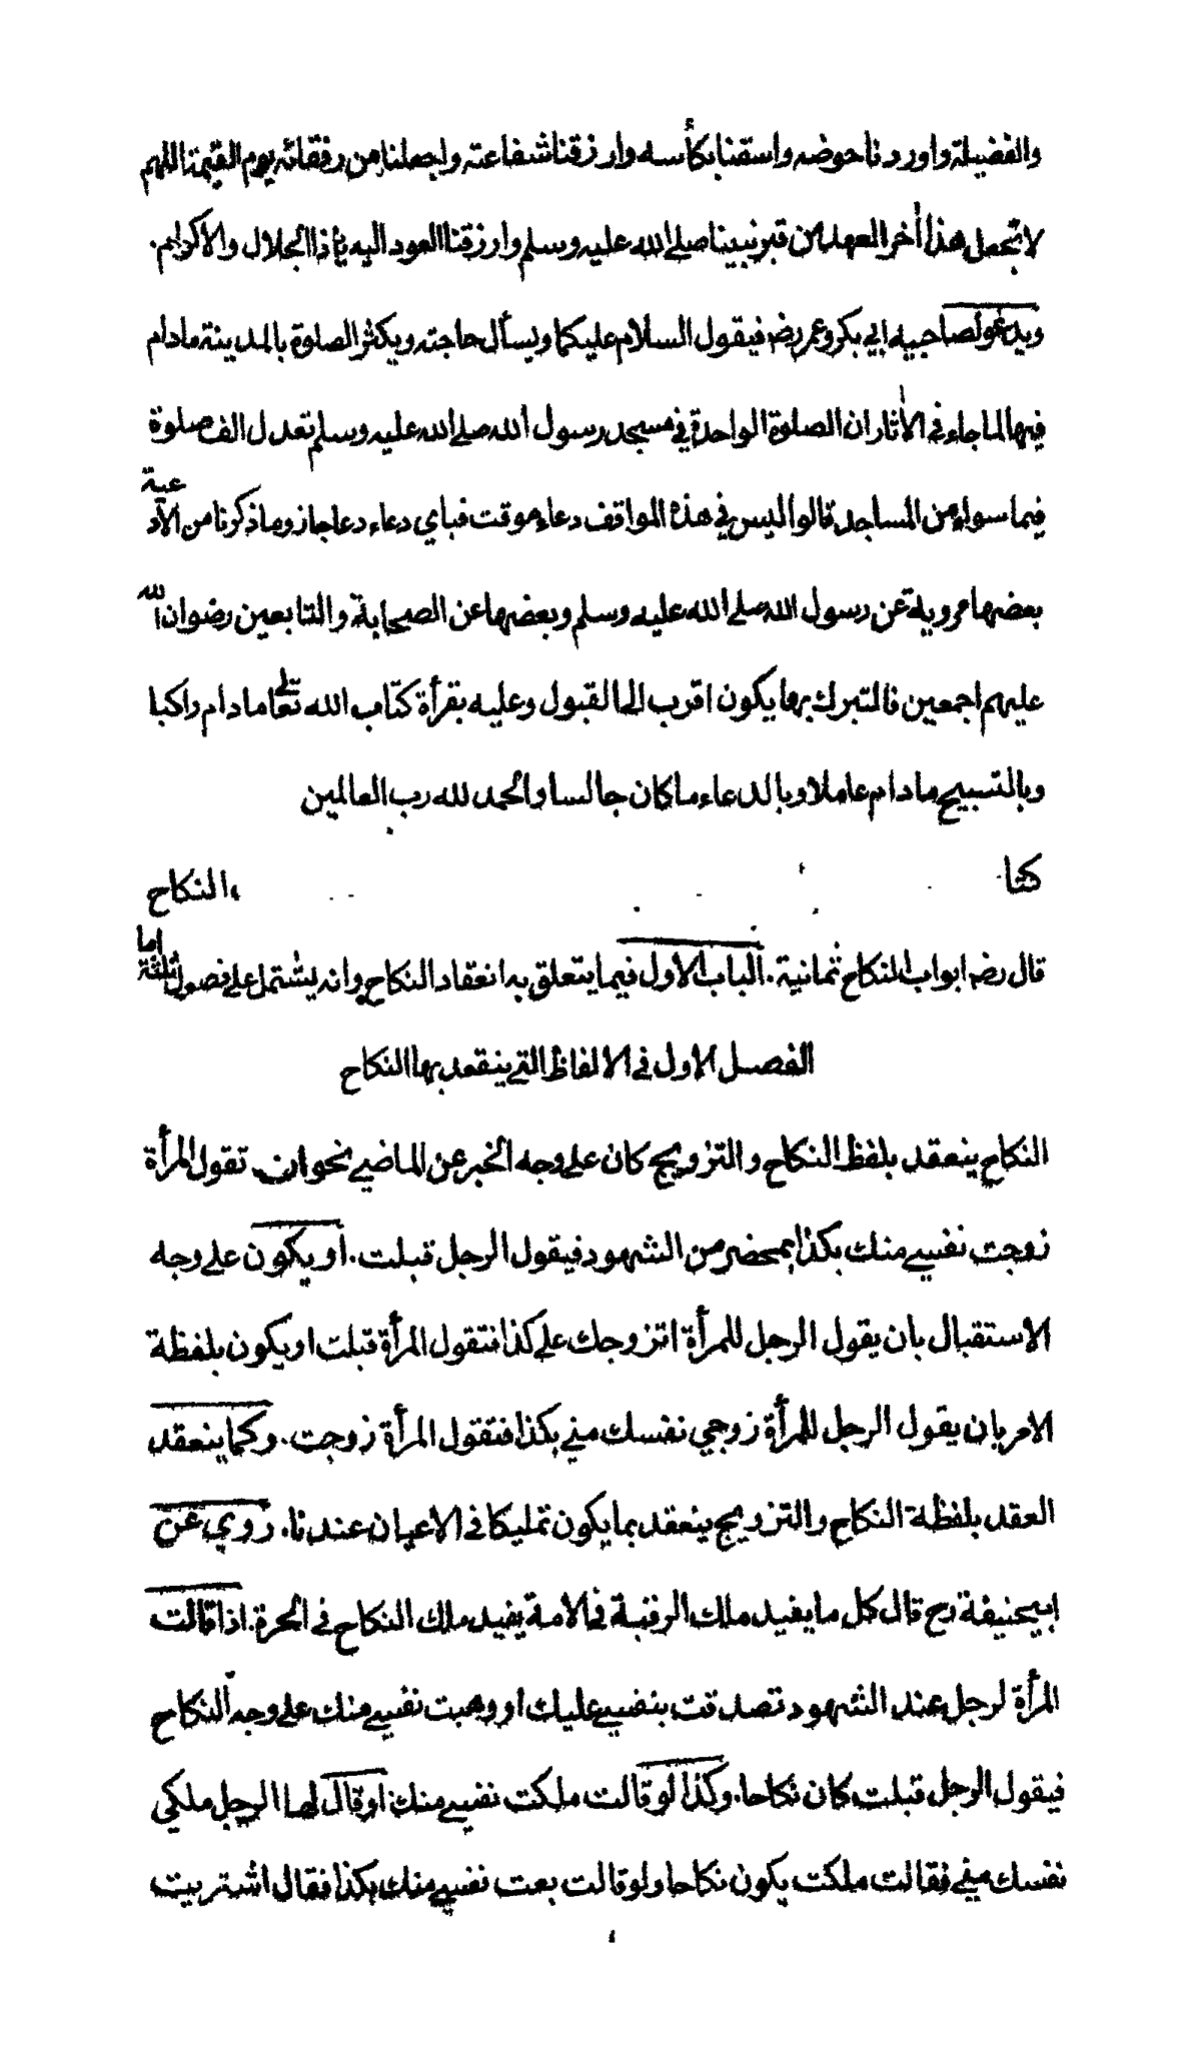 والفضيلة واوردنا حوضه واسقنا بكأسه وارزقنا شفاعته واجعلنا من رفقائه يوم القيمة اللهم
لا تجعل هذا أخر العهد من قبر نبينا صلى الله عليه وسلم وارزقنا العود اليه يا ذا الجلال والاكرام.
ويدعو لصاحبيه ابي بكر وعمر رضه فيقول السلام عليكما ويسأل حاجته ويكثر الصلوة بالمدينة مادام
فيها لما جاء في الأثار ان الصلوة الواحدة في مسجد رسول الله صلى الله عليه وسلم تعدل الف صلوة
فيما سواه من المساجد قالوا ليس في هذه المواقف دعاء موقت فباي دعاء دعا جاز وما ذكرنا من الأدعية
بعضها مروية عن رسول الله صلى الله عليه وسلم وبعضها عن الصحابة والتابعين رضوان الله
عليهم اجمعين فالتبرك بها يكون اقرب الى القبول وعليه بقرأة كتاب الله تعالى مادام راكبا
وبالتسبيح مادام عاملا وبالدعاء ما كان جالسا والحمد لله رب العالمين
كتا ب النكاح
قال رضه ابواب النكاح ثمانية. الباب الاول فيما يتعلق به انعقاد النكاح وانه يشتمل على فصول ثلثة اما
الفصل الاول في الالفاظ التي ينقعد بها النكاح
النكاح ينعقد بلفظ النكاح والتزويج كان على وجه الخبر عن الماضي نحو ان تقول المرأة
زوجت نفسي منك بكذا بمحضر من الشهود فيقول الرجل قبلت. أو يكون على وجه
الاستقبال بان يقول الرجل للمرأة اتزوجك على كذا فتقول المرأة قبلت او يكون بلفظة
الامر بان يقول الرجل للمرأة زوجي نفسك مني بكذا فتقول المرأة زوجت. وكما ينعقد
العقد بلفظة النكاح والتزويج ينعقد بما يكون تمليكا في الاعيان عندنا. روي عن
ابيحنيفة رح قال كل ما يفيد ملك الرقبة في الامة يفيد ملك النكاح في الحرة. اذا قالت
المرأة لرجل عند الشهود تصدقت بنفسي عليك او وهبت نفسي منك على وجه النكاح
فيقول الرجل قبلت كان نكاحا. وكذا لو قالت ملكت نفسي منك او قال لها الرجل ملكي
نفسك مني فقالت ملكت يكون نكاحا ولو قالت بعت نفسي منك بكذا فقال اشتريت